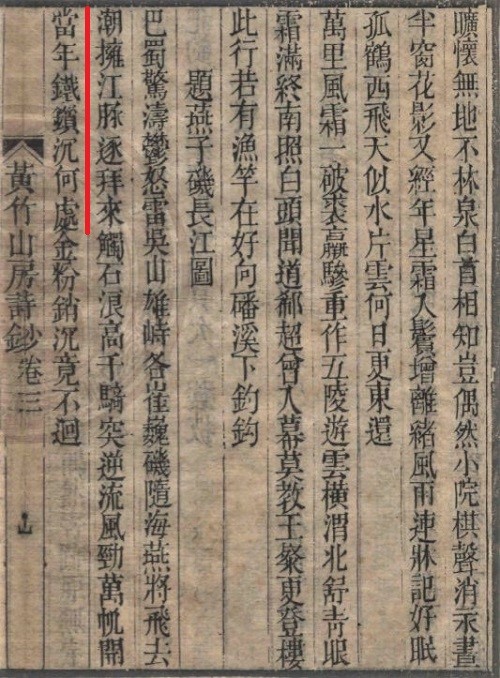 曠懷無地不林泉白首相知豈偶然小院棋聲消永晝
半窗花影又經年星霜入鬢增離緒風雨連牀記好眠
孤鶴西飛天似水片雲何日更東還
萬里風霜一破裘羸驂重作五陵遊雲橫渭北舒青眼
霜滿終南照白頭聞道郄超曾入幕莫教王粲更登樓
此行若有漁竿在好向磻溪下釣鈎
題燕子磯長江圖
巴蜀驚濤鬱怒雷吳山雄峙各崔巍磯隨海燕將飛去
潮擁江豚逐拜來觸石浪高千騎突逆流風勁萬帆開
當年鐵鎖沉何處金粉銷沉竟不迴
黃竹山房詩鈔 卷三